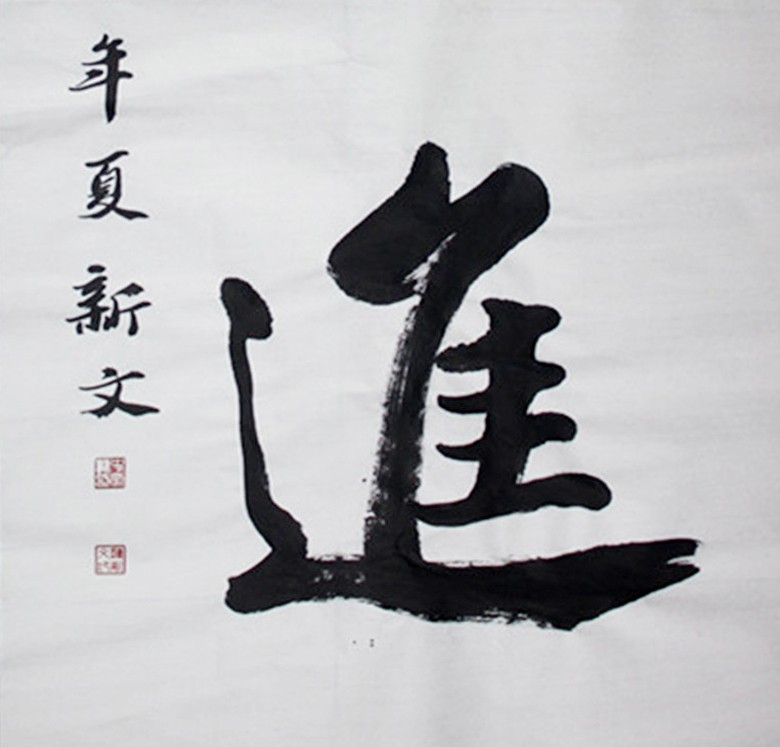 進
年夏新文